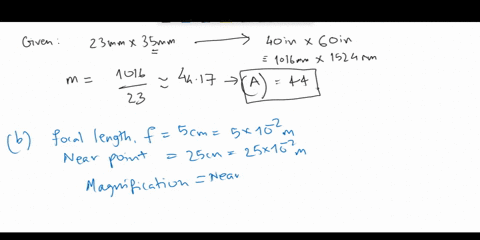 Given: 23mm x 35mm → 40in x 60in
= 1016mm x 1524mm
m = 1016/23 ≈ 44.17 → (A) = 44
(b) focal length, f = 5cm = 5×10⁻² m
Near point = 25cm = 25×10⁻² m
Magnification = Near